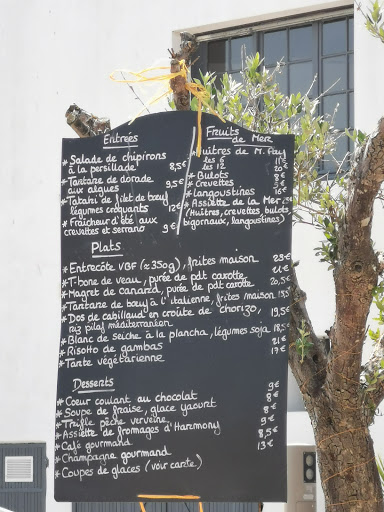 Entrées
* Salade de chipirons
à la persillade 8,5€
* Tartare de dorade
aux algues 9,5€
* Tataki de filet de bœuf
légumes croquants 12€
* Fraîcheur d'été aux
crevettes et serrano 9€
Fruits
de Mer
* Huîtres de M.
les 6 11€
les 12 20€
* Bulots 8€
* Crevettes 5€
* langoustines 16€
* Assiette de la Mer
(Huîtres, crevettes, bulots
bigornaux, langoustines)
Plats
* Entrecôte VBF (≈350g), frites maison 23€
* T-bone de veau, purée de pdt carotte 21€
* Magret de canard, purée de pdt carotte 20,5€
* Tartare de bœuf à l'italienne, frites maison
* Dos de cabillaud en croûte de chorizo, 19,5€
riz pilaf méditerranéen
* Blanc de seiche à la plancha, légumes soja 18,5€
* Risotto de gambas 21€
* Tarte végétarienne 17€
Desserts
* Coeur coulant au chocolat 9€
* Soupe de fraise, glace yaourt 8€
* Trifle pêche verveine 8€
* Assiette de fromages d'Harmony 9€
* Café gourmand 8,5€
* Champagne gourmand 13€
* Coupes de glaces (voir carte)